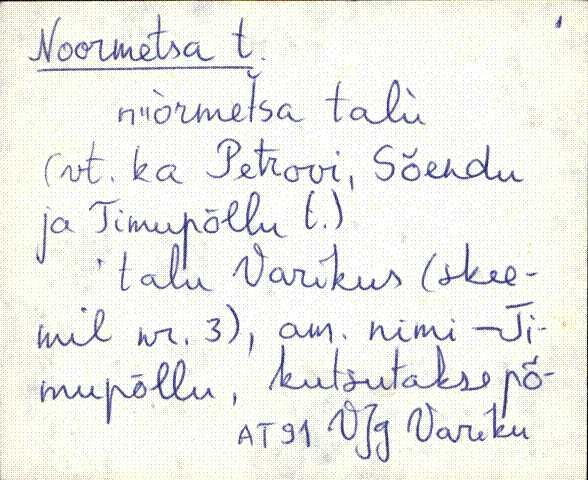 Noormetsa t.
nüòrmeťsa talù
(vt. ka Petrovi, Sõendu
ja Timupõllu t.)
talu Varikus (skee-
mil nr. 3), am. nimi – Ti-
mupõllu, kutsutakse põ-
AT91 VJg Variku